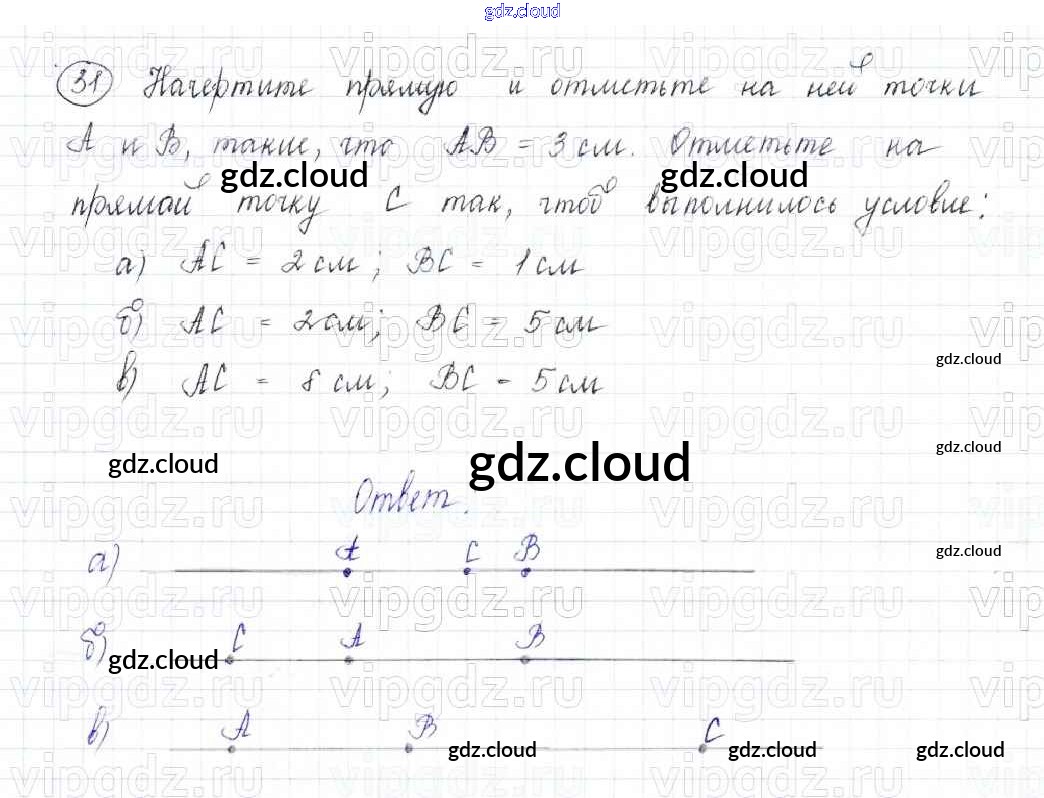 gdz.cloud
31 Начертите прямую и отметьте на ней точки
А и В, такие, что АВ = 3 см. Отметьте на
gdz.cloud gdz.cloud
прямой точку С так, чтоб выполнилось условие:
а) АС = 2 см; ВС = 1 см
б) АС = 2 см; ВС = 5 см
gdz.cloud
в) АС = 8 см; ВС = 5 см
vipgdz.ru vipgdz.ru vipgdz.ru vipgdz.ru
gdz.cloud gdz.cloud gdz.cloud
Ответ:
gdz.cloud
а) А С В
б) С А В
gdz.cloud
в) А В С
gdz.cloud gdz.cloud gdz.cloud